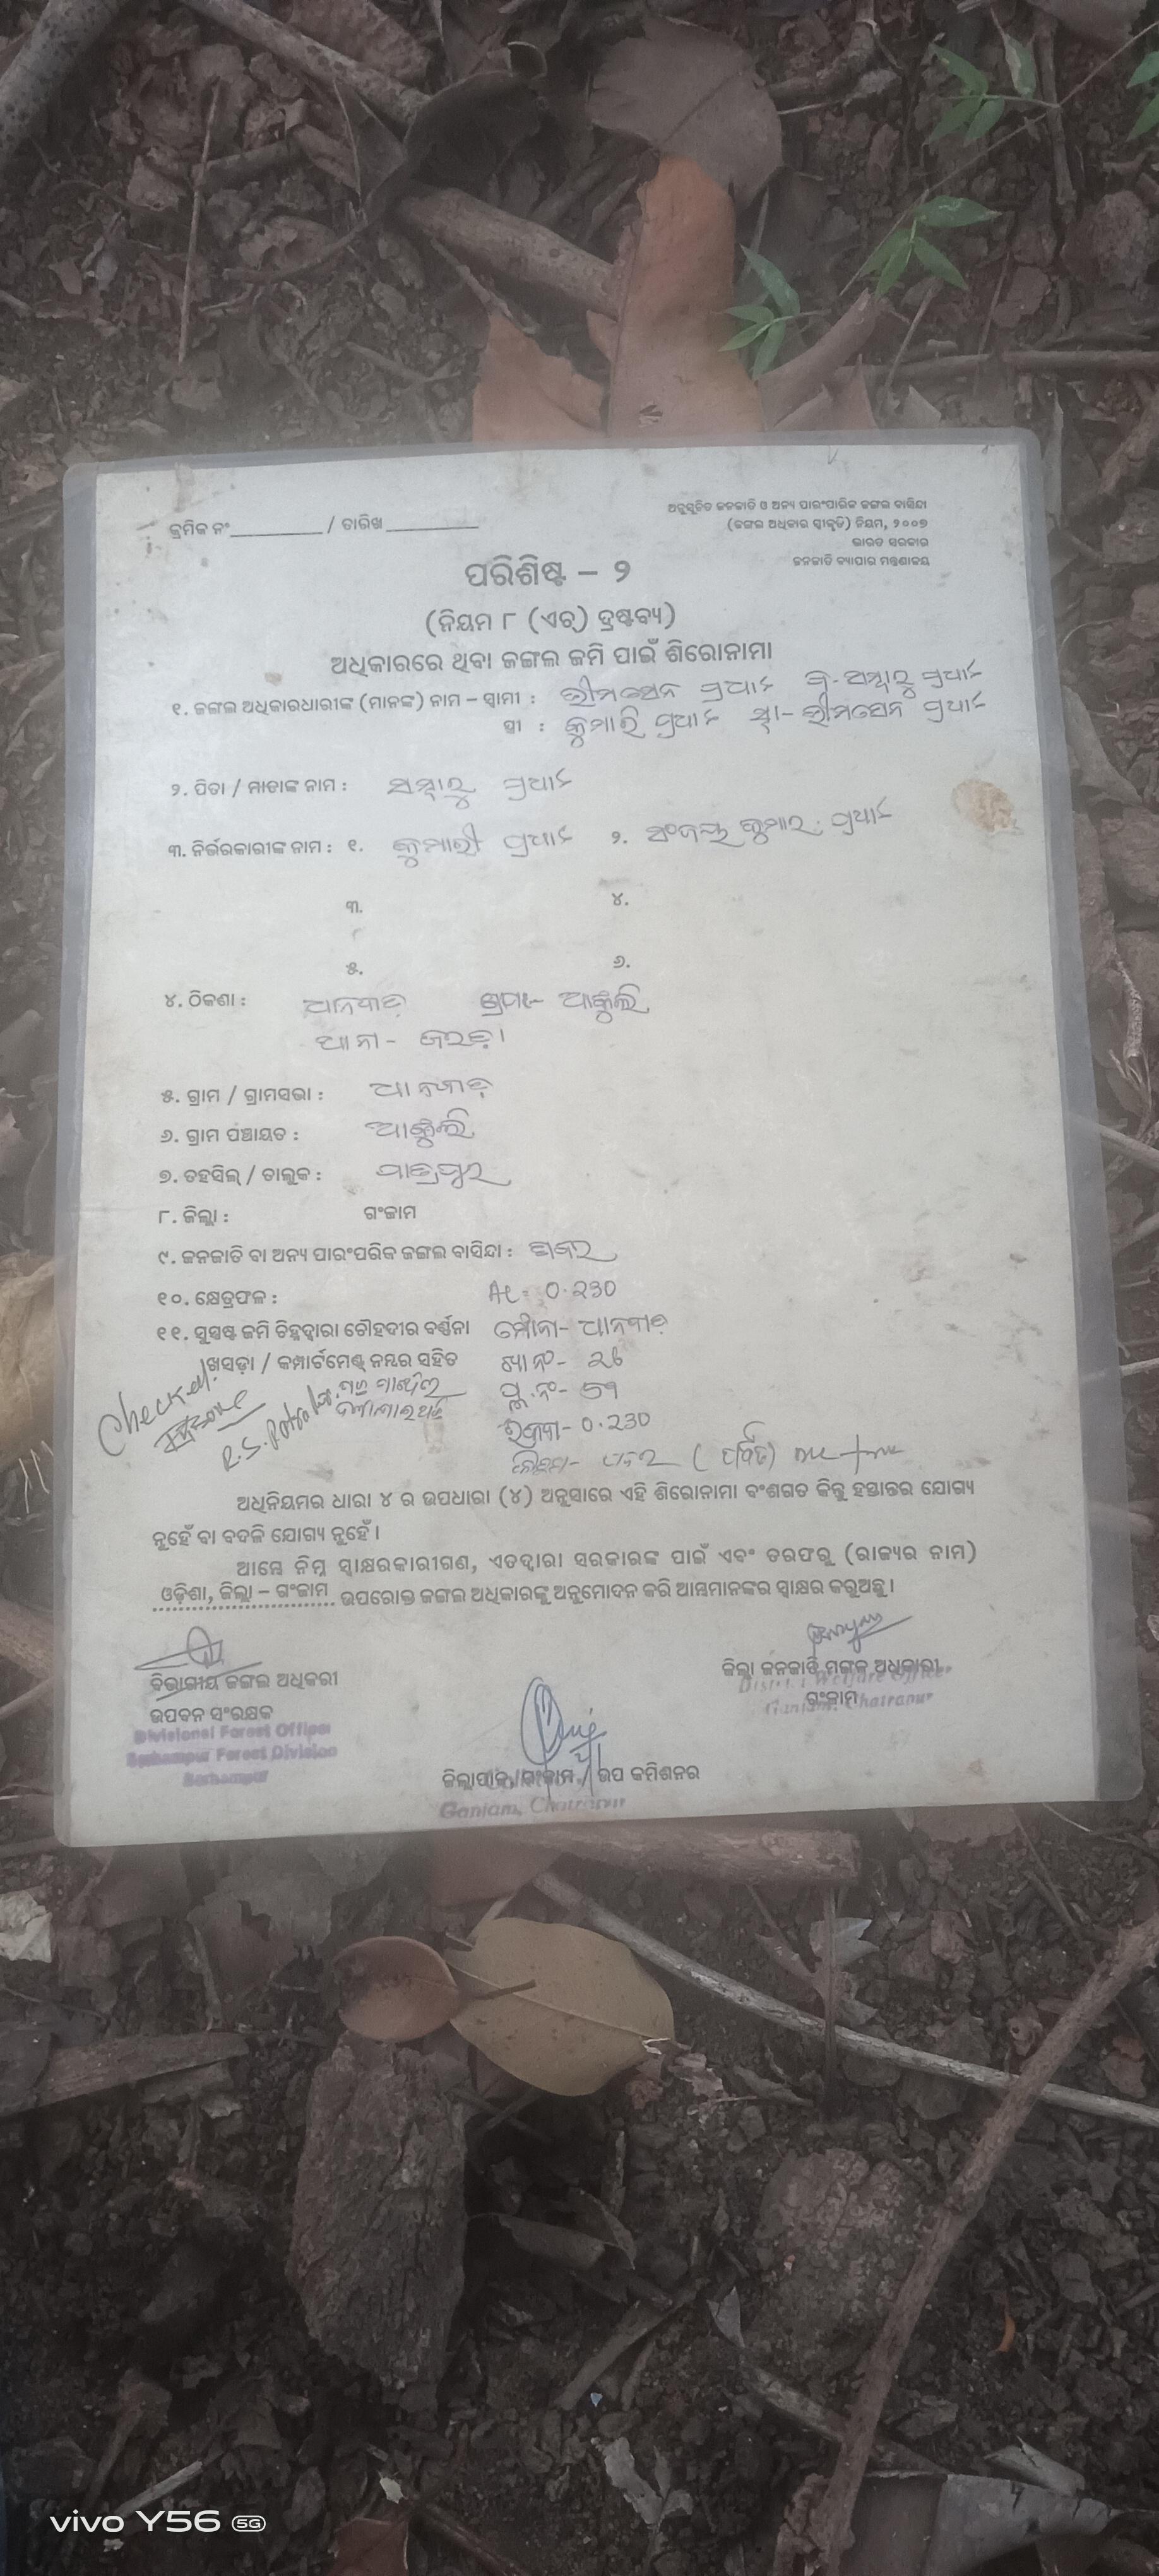 କ୍ରମିକ ନଂ / ତାରିଖ
ଅନୁସୂଚିତ ଜନଜାତି ଓ ଅନ୍ୟ ପାରଂପାରିକ ଜଙ୍ଗଲ ବାସିନ୍ଦା
(ଜଙ୍ଗଲ ଅଧିକାର ସ୍ୱୀକୃତି) ନିୟମ, ୨୦୦୭
ଭାରତ ସରକାର
ଜନଜାତି ବ୍ୟାପାର ମନ୍ତ୍ରଣାଳୟ
ପରିଶିଷ୍ଟ – ୨
(ନିୟମ ୮ (ଏଚ୍) ଦ୍ରଷ୍ଟବ୍ୟ)
ଅଧିକାରରେ ଥିବା ଜଙ୍ଗଲ ଜମି ପାଇଁ ଶିରୋନାମା
୧. ଜଙ୍ଗଲ ଅଧିକାରଧାରୀଙ୍କ (ମାନଙ୍କ) ନାମ – ସ୍ୱାମୀ : ଭୀମସେନ ପ୍ରଧାନ ପ୍ରଧାନ
ସ୍ତ୍ରୀ : କୁମାରି ପ୍ରଧାନ ସ୍ୱା- ଭୀମସେନ ପ୍ରଧାନ
୨. ପିତା / ମାତାଙ୍କ ନାମ : ପ୍ରଧାନ
୩. ନିର୍ଭରକାରୀଙ୍କ ନାମ : ୧. କୁମାରୀ ପ୍ରଧାନ ୨. ସଂଜୟ କୁମାର ପ୍ରଧାନ
୩. ୪.
୫. ୬.
୪. ଠିକଣା : ଆଙ୍କୁଲି
ଥାନା - ଜରଡ଼ା
୫. ଗ୍ରାମ / ଗ୍ରାମସଭା :
୬. ଗ୍ରାମ ପଞ୍ଚାୟତ : ଆଙ୍କୁଲି
୭. ତହସିଲ୍ / ତାଲୁକ : ପାତ୍ରପୁର
୮. ଜିଲ୍ଲା : ଗଂଜାମ
୯. ଜନଜାତି ବା ଅନ୍ୟ ପାରଂପରିକ ଜଙ୍ଗଲ ବାସିନ୍ଦା : ଶବର
୧୦. କ୍ଷେତ୍ରଫଳ : Ac= 0.230
୧୧. ସୁସ୍ପଷ୍ଟ ଜମି ଚିହ୍ନଦ୍ୱାରା ଚୌହଦୀର ବର୍ଣ୍ଣନା ମୌଜା-
ଖସଡ଼ା / କମ୍ପାର୍ଟମେଣ୍ଟ ନମ୍ବର ସହିତ ଖା ନଂ- ୨୬
ପ୍ଲ.ନଂ- ୫୨
ରକବା- 0.230
Checked
ଅଧିନିୟମର ଧାରା ୪ ର ଉପଧାରା (୪) ଅନୁସାରେ ଏହି ଶିରୋନାମା ବଂଶଗତ କିନ୍ତୁ ହସ୍ତାନ୍ତର ଯୋଗ୍ୟ
ନୁହେଁ ବା ବଦଳି ଯୋଗ୍ୟ ନୁହେଁ ।
ଆମ୍ଭେ ନିମ୍ନ ସ୍ୱାକ୍ଷରକାରୀଗଣ, ଏତଦ୍ଦ୍ୱାରା ସରକାରଙ୍କ ପାଇଁ ଏବଂ ତରଫରୁ (ରାଜ୍ୟର ନାମ)
ଓଡ଼ିଶା, ଜିଲ୍ଲା – ଗଂଜାମ ଉପରୋକ୍ତ ଜଙ୍ଗଲ ଅଧିକାରଙ୍କୁ ଅନୁମୋଦନ କରି ଆମ୍ଭମାନଙ୍କର ସ୍ୱାକ୍ଷର କରୁଅଛୁ ।
ବିଭାଗୀୟ ଜଙ୍ଗଲ ଅଧିକରୀ
ଉପବନ ସଂରକ୍ଷକ
Divisional Forest Officer
Berhampur Forest Division
Berhampur
ଜିଲ୍ଲା ଜନଜାତି ମଙ୍ଗଳ ଅଧିକାରୀ,
ଗଂଜାମ
District Welfare Officer
Ganjam, Chatrapur
ଜିଲ୍ଲାପାଳ, ଗଂଜାମ / ଉପ କମିଶନର
Ganjam, Chatrapur
vivo Y56 5G